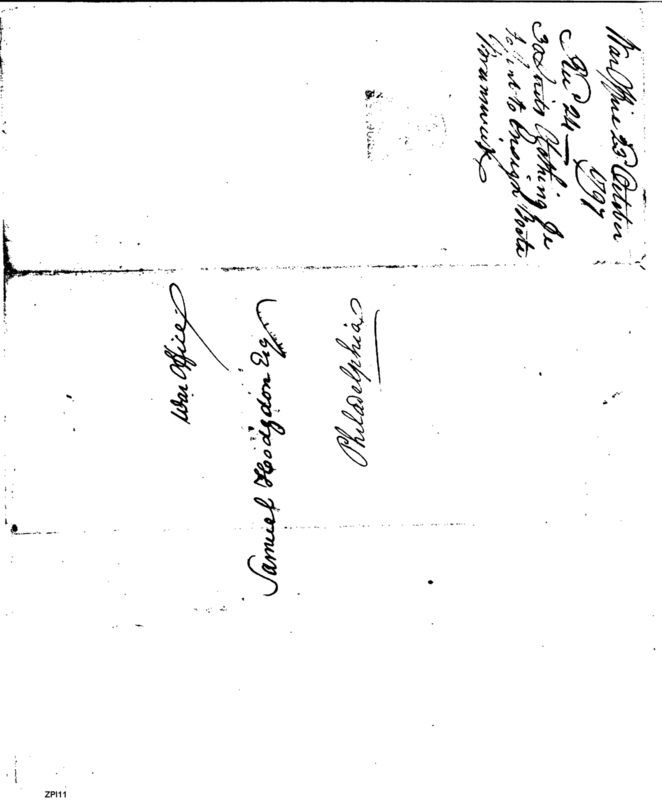 War Office 23 October
1797
Recd 24
30 Suits Clothing
to be sent to Ensign
War Office
Samuel Hodgdon Esq
Philadelphia
ZPI11